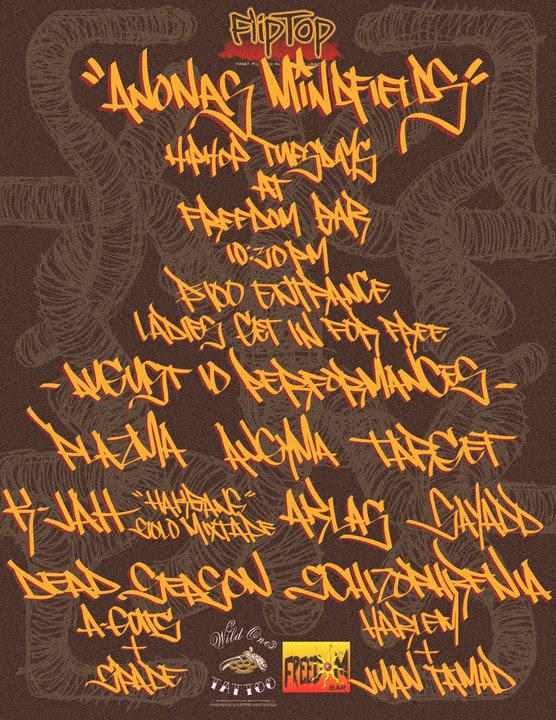 FlipTop
"ANONAS MINDFIELDS"
HIPHOP TUESDAYS
AT
FREEDOM BAR
10:30 PM
₱100 ENTRANCE
LADIES GET IN FOR FREE
- AUGUST 10 PERFORMANCES -
PLAZMA ANGYMA TARGET
K-JAH "HAHBANG" SOLO MIXTAPE ARKLAS SAYADD
DEAD SEASON SCHIZOPHRENIA
A-GONG HARLEM
+ +
SPADE JUAN TAMAD
Wild Ones
TATTOO
FREEDOM
BAR